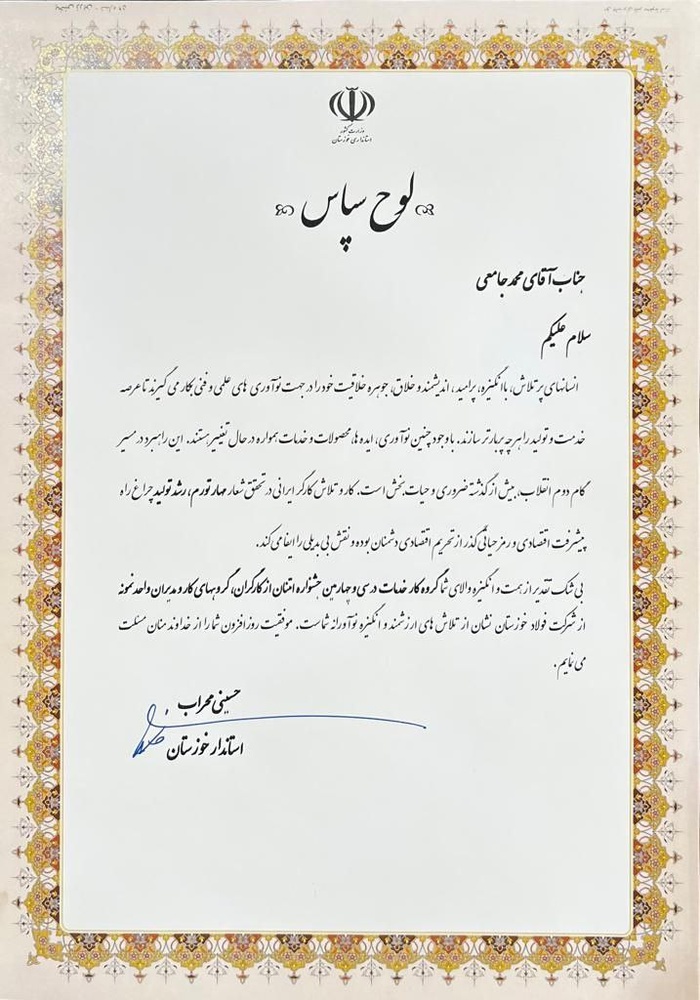 وزارت کشور
استانداری خوزستان
لوح سپاس
جناب آقای محمد جامعی
سلام علیکم
انسانهای پر تلاش، با انگیزه، پرامید، اندیشمند و خلاق، جوهره خلاقیت خود را در جهت نوآوری های علمی و فنی بکار می گیرند تا عرصه
خدمت و تولید را هر چه پربارتر سازند. با وجود چنین نوآوری، ایده ها، محصولات و خدمات همواره در حال تغییر هستند. این راهبرد در مسیر
گام دوم انقلاب، بیش از گذشته ضروری و حیات بخش است. کار و تلاش کارگر ایرانی در تحقق شعار مهار تورم، رشد تولید چراغ راه
پیشرفت اقتصادی و رمز حیاتی گذر از تحریم اقتصادی دشمنان بوده و نقش بی بدیلی را ایفا می کند.
بی شک تقدیر از همت و انگیزه والای شما گروه کار خدمات در سی و چهارمین جشنواره امتنان از کارگران، گروههای کار و مدیران واحد نمونه
از شرکت فولاد خوزستان نشان از تلاش های ارزشمند و انگیزه نوآورانه شماست. موفقیت روزافزون شما را از خداوند منان مسئلت
می نمایم.
حسینی محراب
استاندار خوزستان